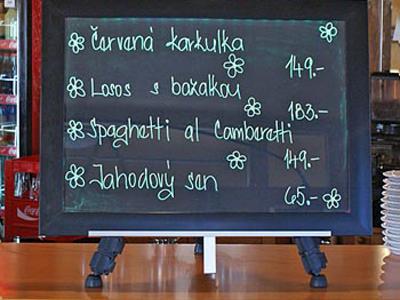 Červená karkulka
149.-
Losos s bazalkou
183.-
Spaghetti al Camberetti
149.-
Jahodový sen
65.-
Coca-Cola